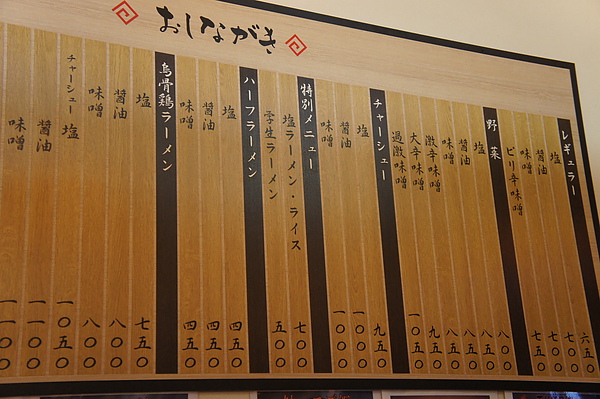 おしながき
レギュラー
塩 六五〇
醤油 七〇〇
味噌 七〇〇
ピリ辛味噌 七五〇
野菜
塩 八〇〇
醤油 八五〇
味噌 八五〇
激辛味噌 八五〇
大辛味噌 九五〇
過激味噌 一〇五〇
チャーシュー
塩 九五〇
醤油 一〇〇〇
味噌 一〇〇〇
特別メニュー
塩ラーメン・ライス 七〇〇
学生ラーメン 五〇〇
ハーフラーメン
塩 四五〇
醤油 四五〇
味噌 四五〇
烏骨鶏ラーメン
塩 七五〇
醤油 八〇〇
味噌 八〇〇
チャーシュー塩 一〇五〇
醤油 一一〇〇
味噌 一一〇〇